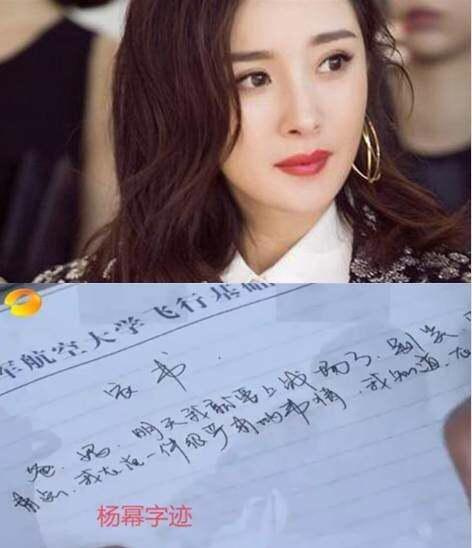 军航空大学飞行基础
家书
爸、妈，明天我就要上战场了，别哭
我在做一件很了不起的事情，我知道，在
杨幂字迹